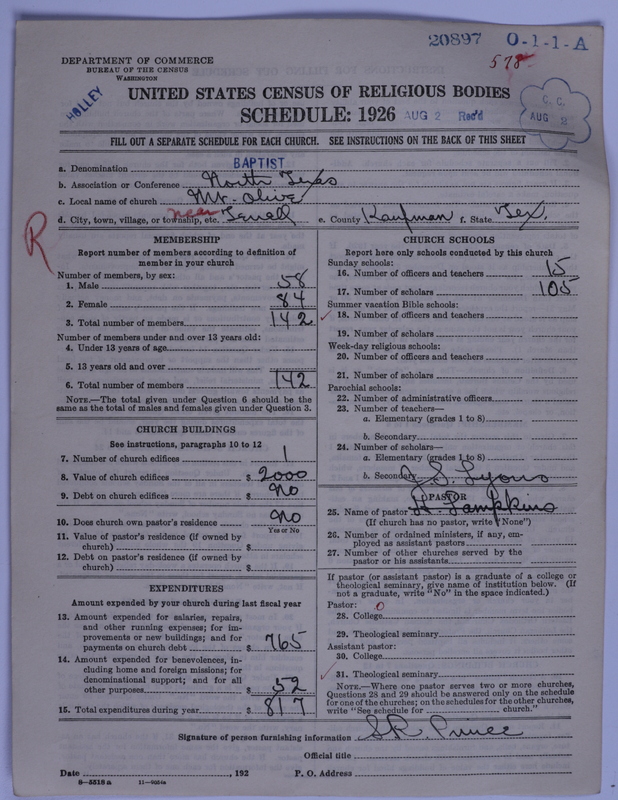 20897 O-1-1-A
578
DEPARTMENT OF COMMERCE
BUREAU OF THE CENSUS
WASHINGTON
HOLLEY
UNITED STATES CENSUS OF RELIGIOUS BODIES
SCHEDULE: 1926 AUG 2 Rec'd
C. C. AUG 2
FILL OUT A SEPARATE SCHEDULE FOR EACH CHURCH. SEE INSTRUCTIONS ON THE BACK OF THIS SHEET
a. Denomination BAPTIST
b. Association or Conference North Texas
c. Local name of church Mt. Olive
d. City, town, village, or township, etc. near Terrell e. County Kaufman f. State Tex.
R
MEMBERSHIP
Report number of members according to definition of
member in your church
Number of members, by sex:
1. Male 58
2. Female 84
3. Total number of members 142
Number of members under and over 13 years old:
4. Under 13 years of age
5. 13 years old and over
6. Total number of members 142
NOTE.—The total given under Question 6 should be
same as the total of males and females given under Question 3.
CHURCH BUILDINGS
See instructions, paragraphs 10 to 12
7. Number of church edifices 1
8. Value of church edifices $ 2000
9. Debt on church edifices $ No
10. Does church own pastor's residence No
Yes or No
11. Value of pastor's residence (if owned by
church) $
12. Debt on pastor's residence (if owned by
church) $
EXPENDITURES
Amount expended by your church during last fiscal year
13. Amount expended for salaries, repairs,
and other running expenses; for im-
provements or new buildings; and for
payments on church debt $ 765
14. Amount expended for benevolences, in-
cluding home and foreign missions; for
denominational support; and for all
other purposes 52
15. Total expenditures during year $ 817
CHURCH SCHOOLS
Report here only schools conducted by this church
Sunday schools:
16. Number of officers and teachers 15
17. Number of scholars 105
Summer vacation Bible schools:
18. Number of officers and teachers
19. Number of scholars
Week-day religious schools:
20. Number of officers and teachers
21. Number of scholars
Parochial schools:
22. Number of administrative officers
23. Number of teachers—
a. Elementary (grades 1 to 8)
b. Secondary
24. Number of scholars—
a. Elementary (grades 1 to 8)
b. Secondary S. Lyons
PASTOR
25. Name of pastor Lampkins
(If church has no pastor, write "None")
26. Number of ordained ministers, if any, em-
ployed as assistant pastors
27. Number of other churches served by the
pastor or his assistants
If pastor (or assistant pastor) is a graduate of a college or
theological seminary, give name of institution below. (If
not a graduate, write "No" in the space indicated.)
Pastor: 0
28. College
29. Theological seminary
Assistant pastor:
30. College
31. Theological seminary
NOTE.—Where one pastor serves two or more churches,
Questions 28 and 29 should be answered only on the schedule
for one of the churches; on the schedules for the other churches,
write "See schedule for church."
Signature of person furnishing information S.R. Prince
Official title
Date , 192 P. O. Address
8—5518 a 11—9054a